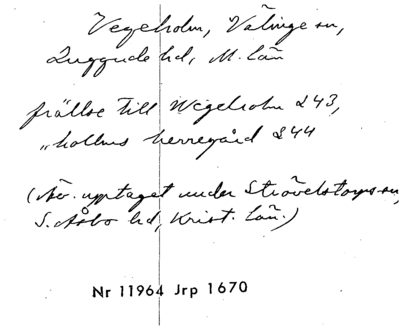 Vegeholm, Välinge sn,
Luggude hd, M. län
frällse till Wegeholm 243,
„ hollms herregård 244
(Äv. upptaget under Strövelstorps sn,
S. Åsbo hd, Krist. län.)
Nr 11964 Jrp 1670